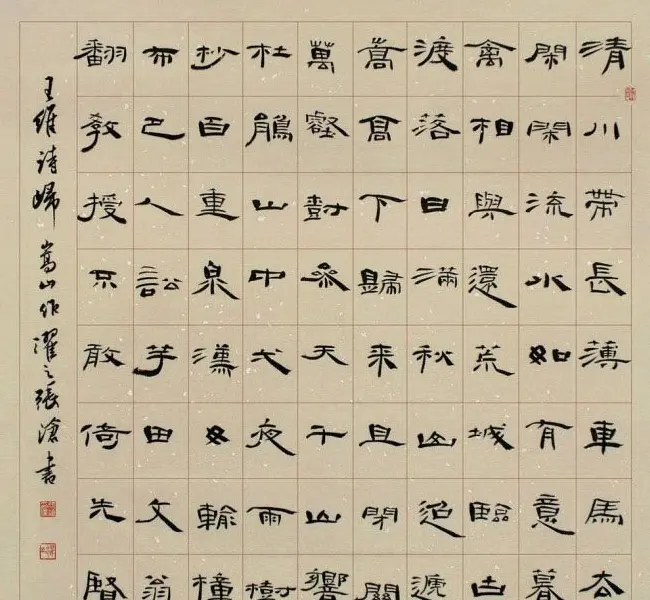 清川帶長薄車馬去
閑閑流水如有意暮
禽相與還荒城臨古
渡落日滿秋山迢遞
嵩高下歸来且閉關
萬壑樹參天千山響
杜鵑山中弌夜雨樹
杪百重泉漢女輸橦
布巴人訟芋田文翁
翻教授不敢倚先賢
王維詩歸嵩山作濯之張滄書